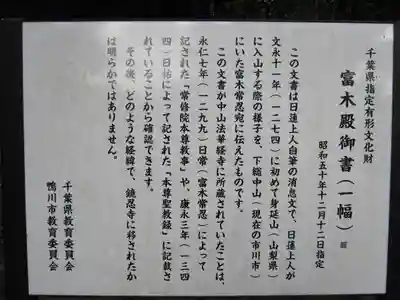 千葉県指定有形文化財
富木殿御書(一幅)
昭和五十年十二月十二日指定
この文書は日蓮上人自筆の消息文で、日蓮上人が
文永十一年(一二七四)に初めて身延山(山梨県)
に入山する際の様子を、下総中山(現在の市川市)
にいた富木常忍宛に伝えたものです。
この文書が中山法華経寺に所蔵されていたことは、
永仁七年(一二九九)日常(富木常忍)によって
記された「常修院本尊教事」や、康永三年(一三四
四)日祐によって記された「本尊聖教録」に記載さ
れていることから確認できます。
その後、どのような経緯で、鏡忍寺に移されたか
は明らかではありません。
千葉県教育委員会
鴨川市教育委員会